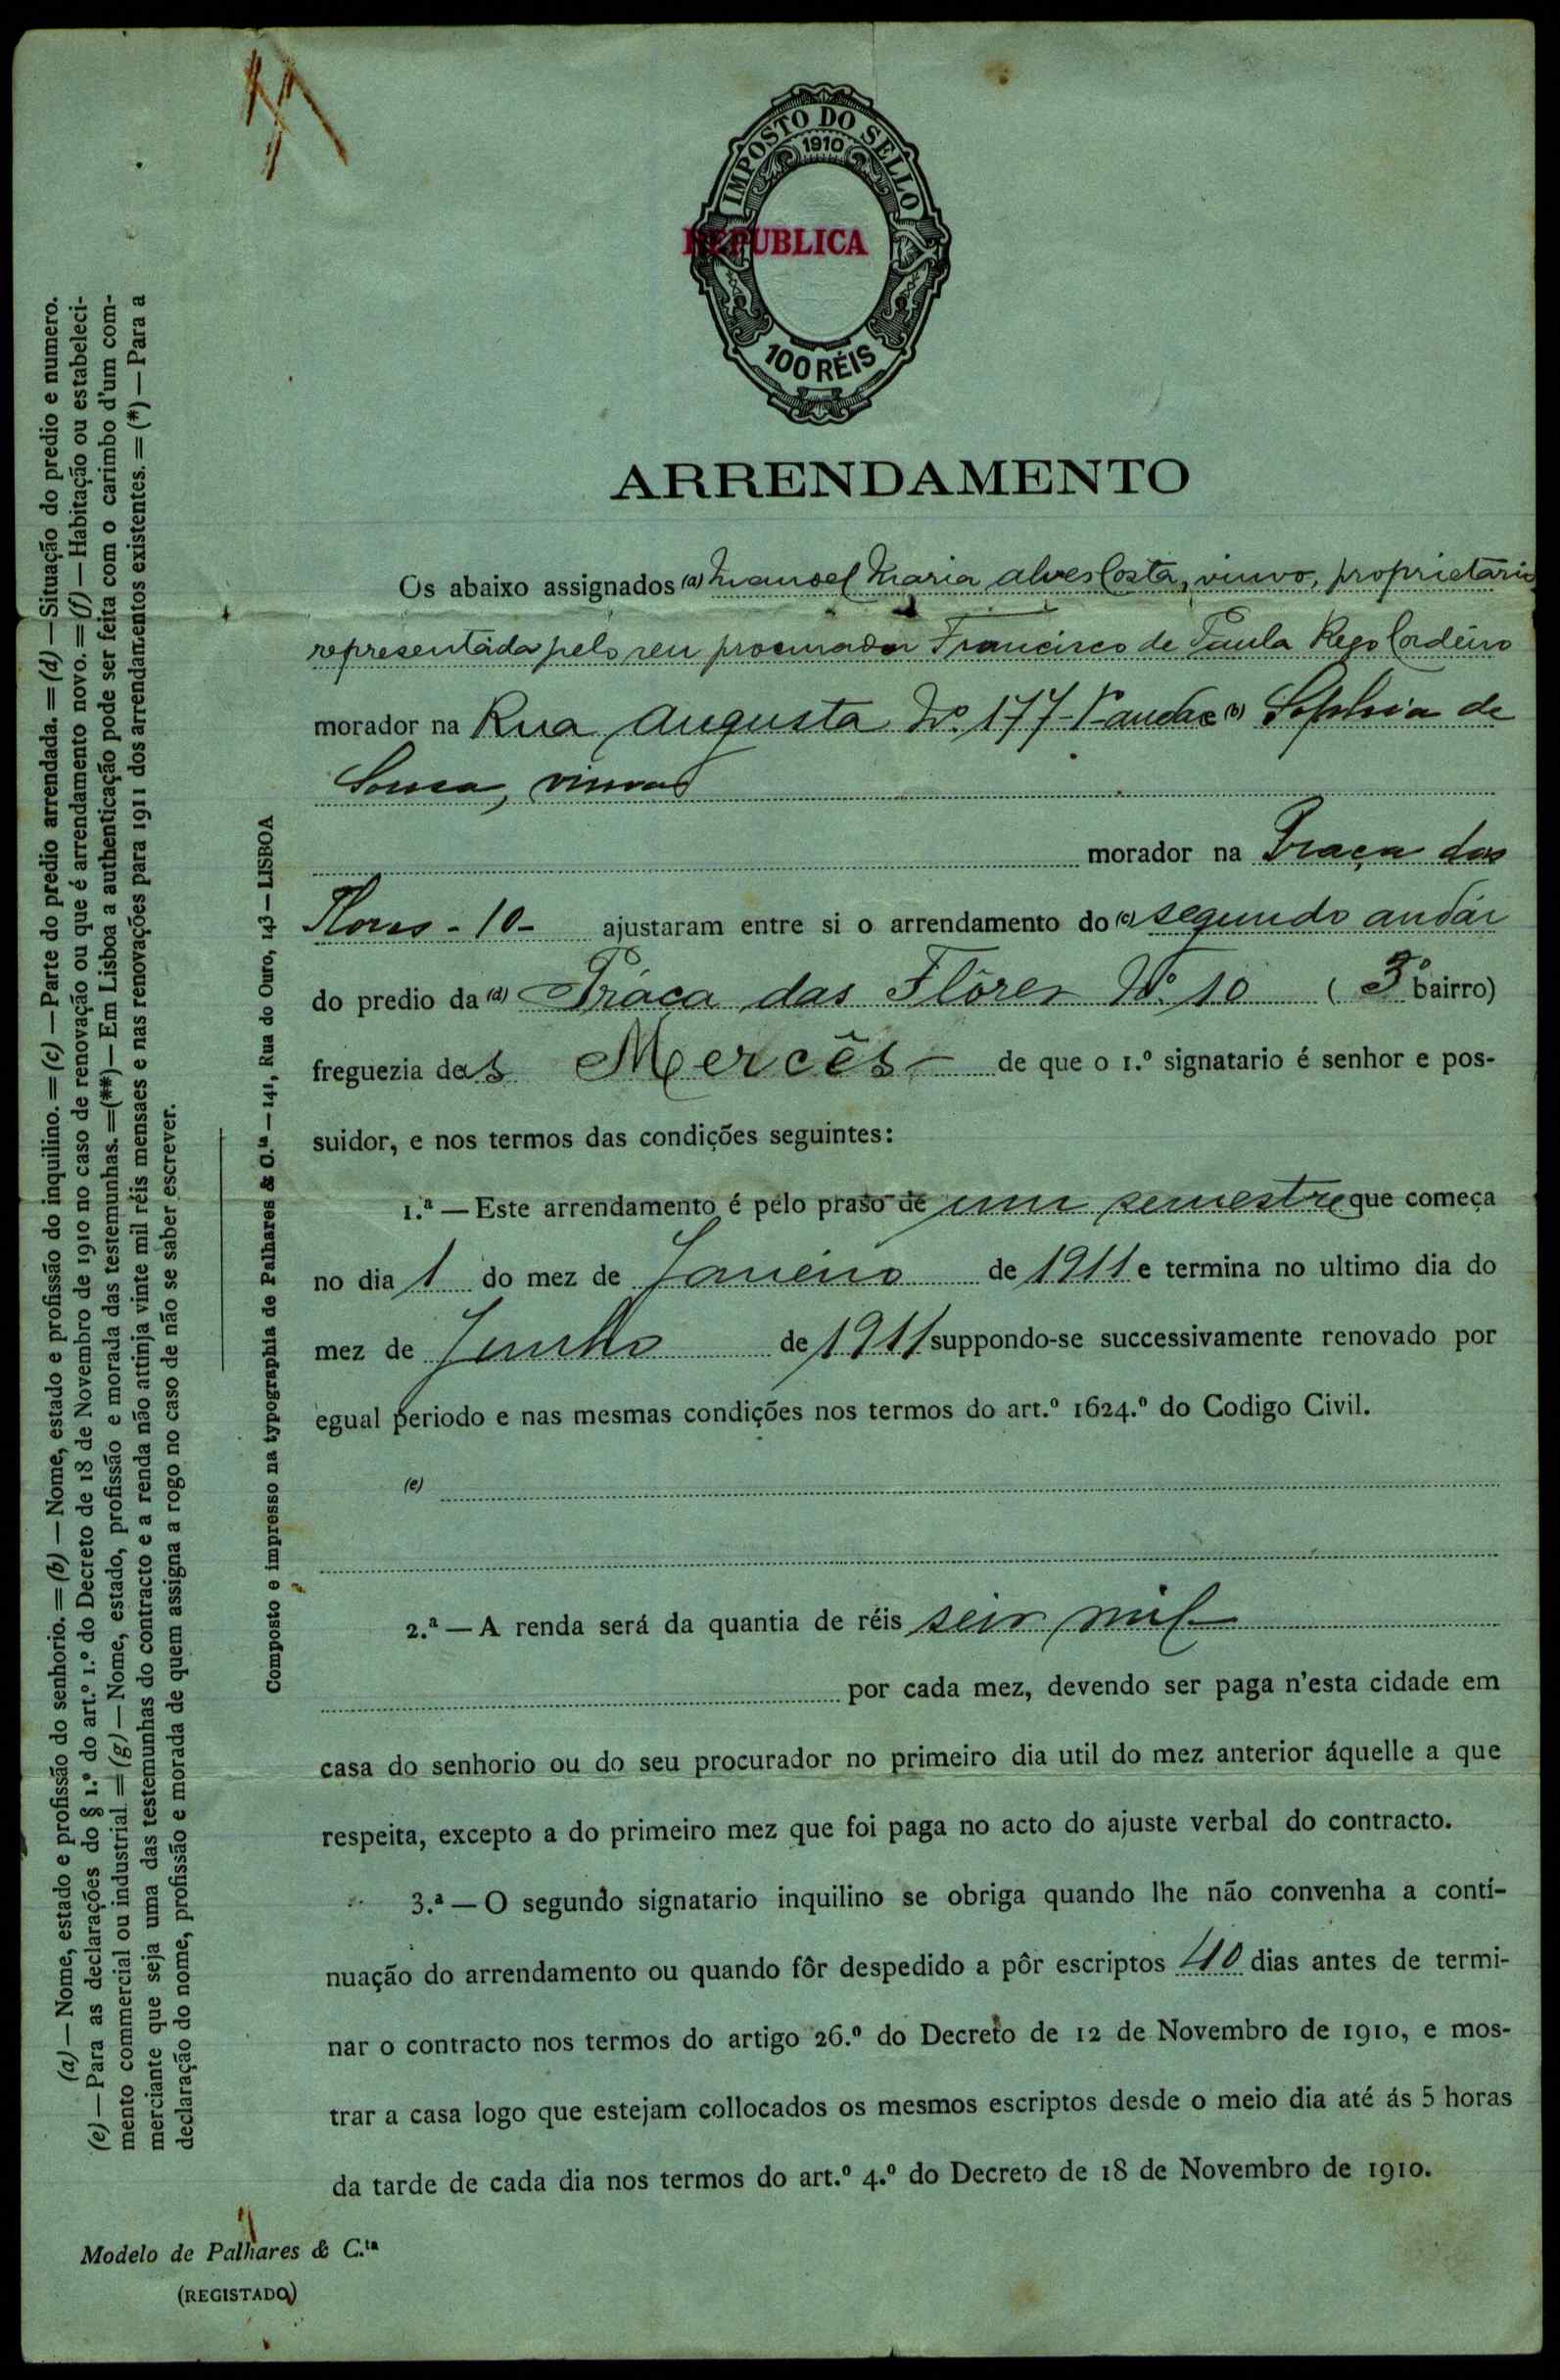 IMPOSTO DO SELLO
1910
REPUBLICA
100 RÉIS
ARRENDAMENTO
Os abaixo assignados (a) Manoel Maria Alves Costa, viuvo, proprietario
representado pelo seu procurador Francisco de Paula Rego Cordeiro
morador na Rua Augusta Nº 177-1º andar (b) Sophia de
Sousa, viuva
morador na Praça das
Flores - 10 - ajustaram entre si o arrendamento do (c) segundo andár
do predio da (d) Práça das Flôres Nº 10 ( 3º bairro)
freguezia das Mercês - de que o 1.º signatario é senhor e pos-
suidor, e nos termos das condições seguintes:
1.ª — Este arrendamento é pelo praso de um semestre que começa
no dia 1 do mez de Janeiro de 1911 e termina no ultimo dia do
mez de Junho de 1911 suppondo-se successivamente renovado por
egual periodo e nas mesmas condições nos termos do art.º 1624.º do Codigo Civil.
(e)
2.ª — A renda será da quantia de réis seis mil
por cada mez, devendo ser paga n'esta cidade em
casa do senhorio ou do seu procurador no primeiro dia util do mez anterior áquelle a que
respeita, excepto a do primeiro mez que foi paga no acto do ajuste verbal do contracto.
3.ª — O segundo signatario inquilino se obriga quando lhe não convenha a conti-
nuação do arrendamento ou quando fôr despedido a pôr escriptos 40 dias antes de termi-
nar o contracto nos termos do artigo 26.º do Decreto de 12 de Novembro de 1910, e mos-
trar a casa logo que estejam collocados os mesmos escriptos desde o meio dia até ás 5 horas
da tarde de cada dia nos termos do art.º 4.º do Decreto de 18 de Novembro de 1910.
(a) — Nome, estado e profissão do senhorio. = (b) — Nome, estado e profissão do inquilino. = (c) — Parte do predio arrendada. = (d) — Situação do predio e numero.
(e) — Para as declarações do § 1.º do art.º 1.º do Decreto de 18 de Novembro de 1910 no caso de renovação ou que é arrendamento novo. = (f) — Habitação ou estabeleci-
mento commercial ou industrial = (g) — Nome, estado, profissão e morada das testemunhas. = (**) — Em Lisboa a authenticação pode ser feita com o carimbo d'um com-
merciante que seja uma das testemunhas do contracto e a renda não attinja vinte mil réis mensaes e nas renovações para 1911 dos arrendamentos existentes. = (*) — Para a
declaração do nome, profissão e morada de quem assigna a rogo no caso de não se saber escrever.
Composto e impresso na typographia de Palhares & C.ia — 141, Rua do Ouro, 143 — LISBOA
Modelo de Palhares & C.ia
(REGISTADO)